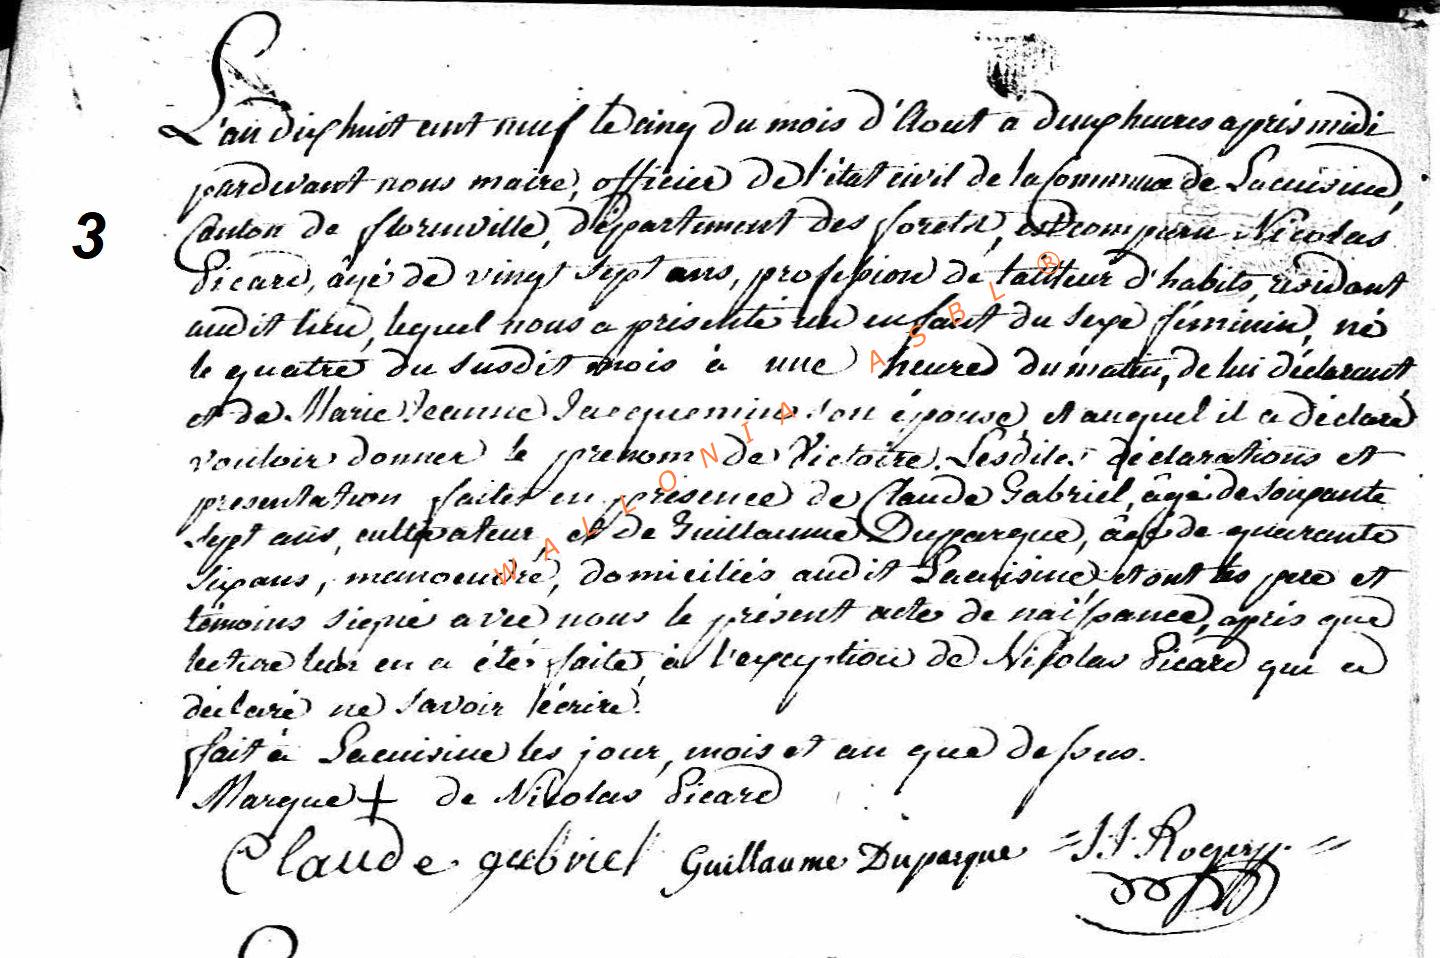 L'an dix huit cent neuf le cinq du mois d'Aout a deux heures après midi
pardevant nous maire, officier de l'état civil de la Commune de Lacuisine,
Canton de florenville, département des forets, est comparu Nicolas
3
Picard, âgé de vingt sept ans, profession de tailleur d'habits, résidant
audit lieu, lequel nous a présenté un enfant du sexe féminin, né
le quatre du susdit mois à une heure du matin, de lui déclarant
et de Marie Jeanne Jacquemin son épouse, et auquel il a déclaré
vouloir donner le prenom de Victoire. Lesdites déclarations et
presentation faites en présence de Claude Gabriel, âgé de soixante
sept ans, cultivateur, et de Guillaume Duparque, âgé de quarante
six ans, manoeuvre, domiciliés audit Lacuisine, et ont les pere et
témoins signé avec nous le présent acte de naissance, après que
lecture leur en a été faite, à l'exception de Nicolas Picard qui a
déclaré ne savoir écrire.
fait à Lacuisine les jour, mois et an que dessus.
Marque + de Nicolas Picard
Claude gabriel Guillaume Duparque = J. J. Rogery =
WALLONIA ASBL ®